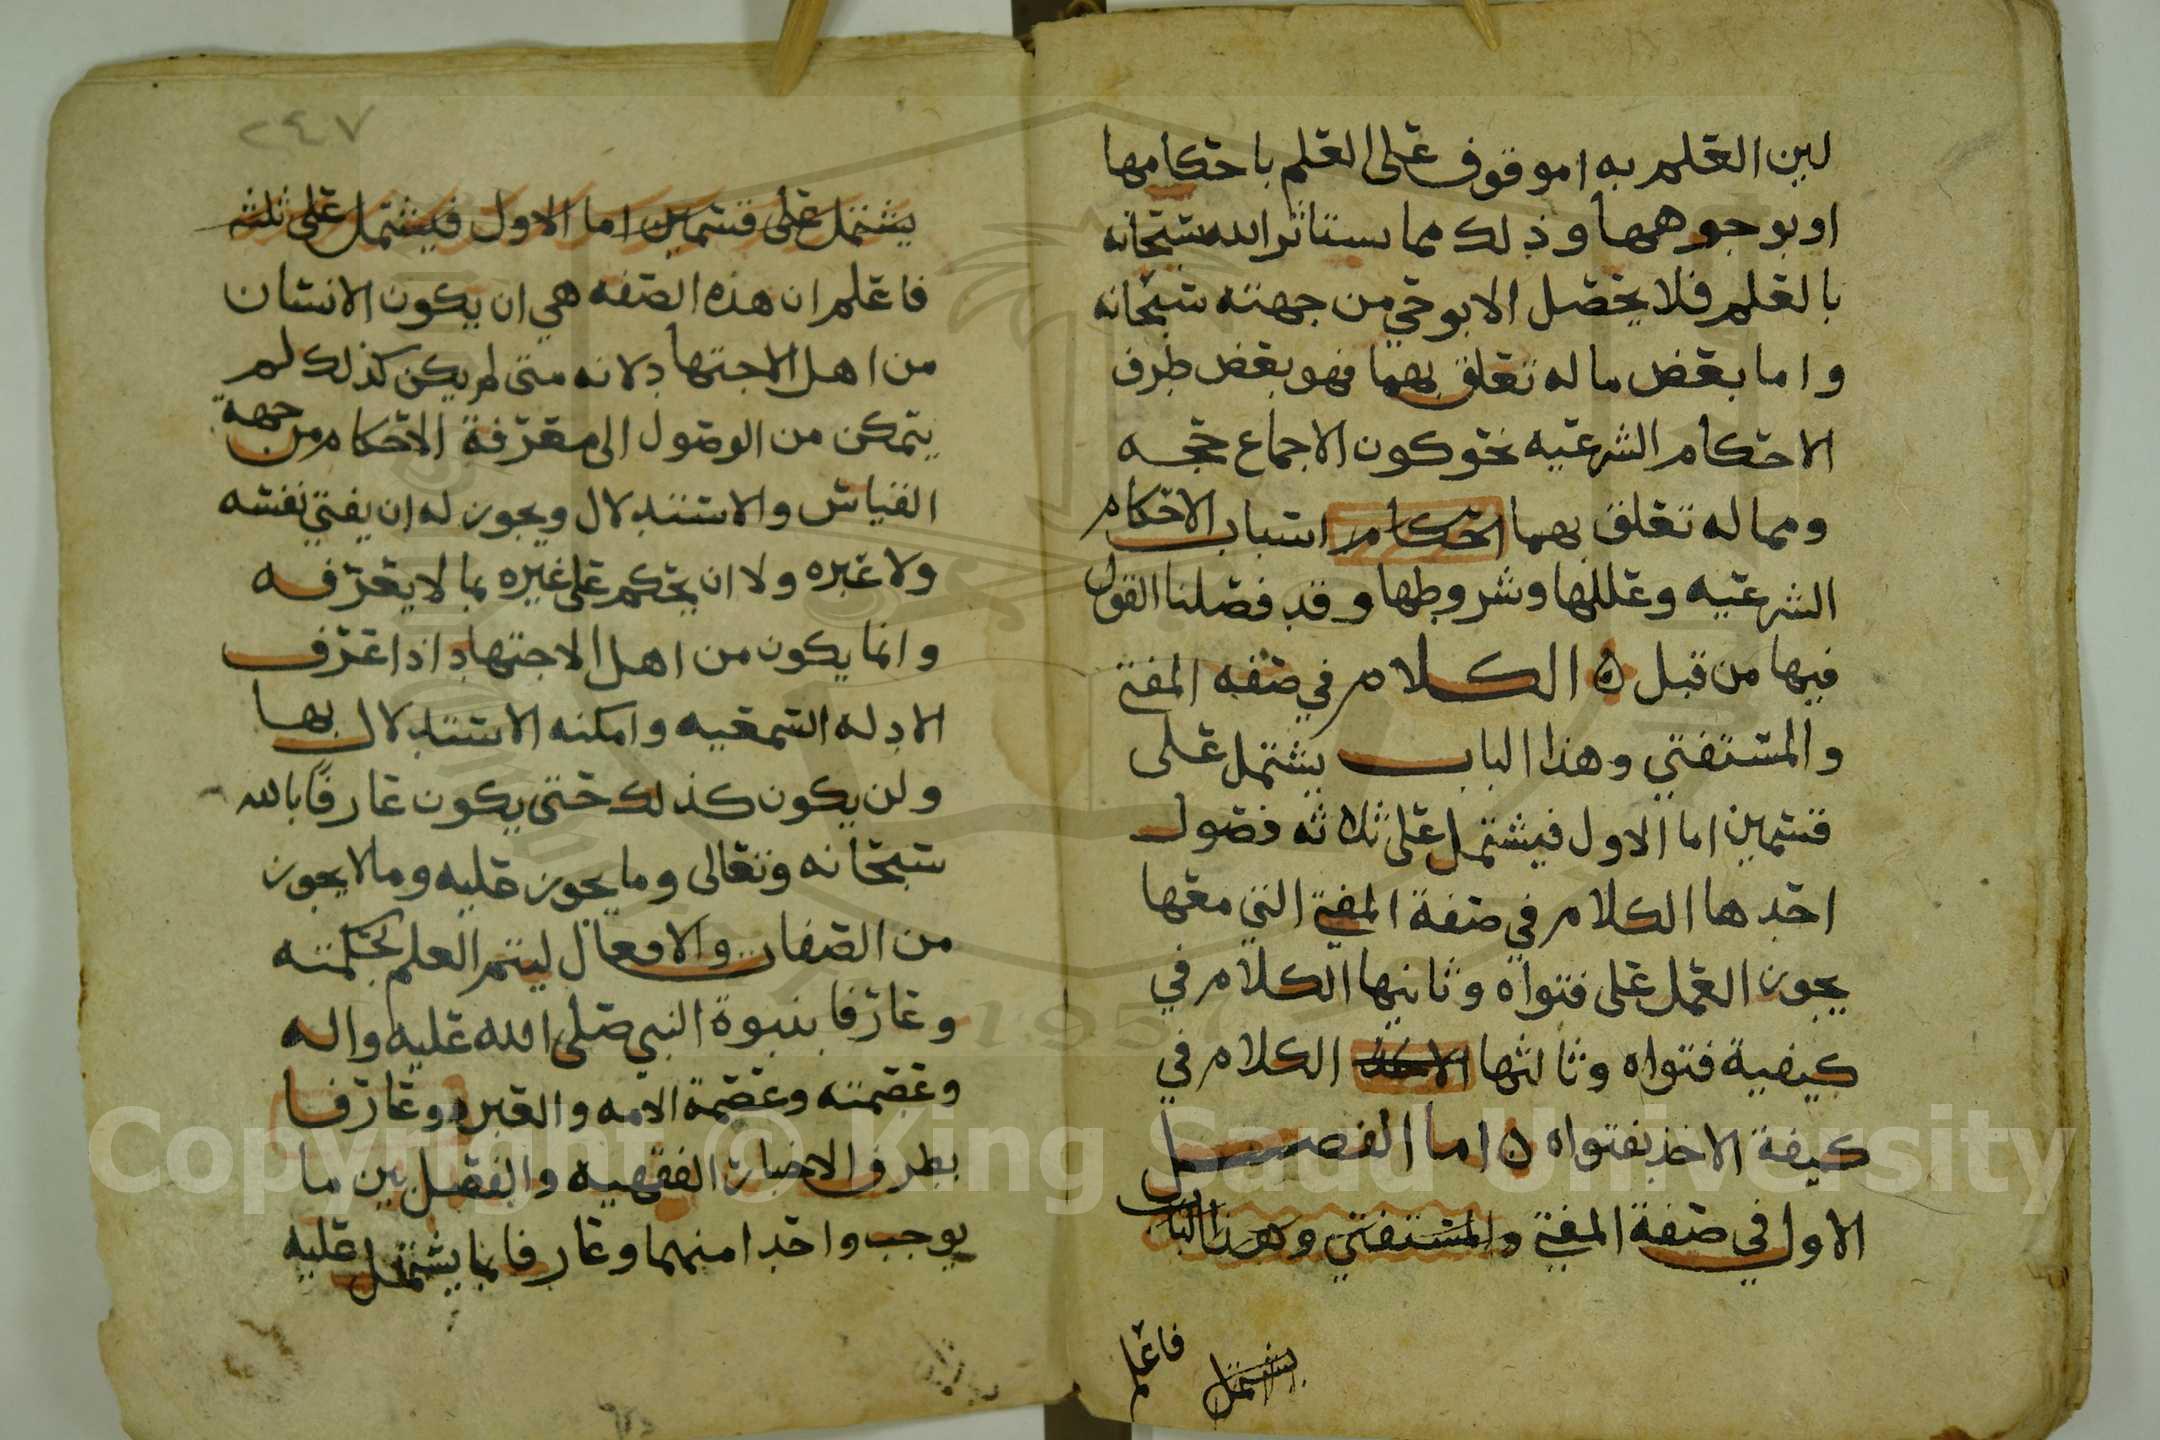 لين العلم به اموقوف على العلم باحكامها
او بوجوهها وذلك مما يستاثر الله سبحانه
بالعلم فلا يحصل الا بوحي من جهته سبحانه
واما بعض ماله تعلق بهما فهو بعض طرف
الاحكام الشرعيه نحو كون الاجماع حجه
ومما له تعلق بهما احكام اسباب الاحكام
الشرعيه وعللها وشروطها وقد فصلنا القول
فيها من قبل ه الكلام في صفه المفتي
والمستفتي وهذا الباب يشتمل على
قسمين اما الاول فيشتمل على ثلاثه فصول
احدها الكلام في صفة المفتي التي معها
يجوز العمل على فتواه وثانيها الكلام في
كيفية فتواه وثالثها الكلام في
كيفة الاخذ بفتواه ه اما الفصل
الاول في صفة المفتي والمستفتي وهذا الباب
يشتمل فاعلم
٢٤٧
يشتمل على قسمين اما الاول فيشتمل على ثلثه
فاعلم ان هذه الصفه هي ان يكون الانسان
من اهل الاجتهاد لانه متى لم يكن كذلك لم
يتمكن من الوصول الى معرفة الاحكام من جهة
القياس والاستدلال ويجوز له ان يفتي نفسه
ولا غيره ولا ان يحكم على غيره بما لا يعرفه
وانما يكون من اهل الاجتهاد اذا عرف
الادله السمعيه وامكنه الاستدلال بها
ولن يكون كذلك حتى يكون عارفا بالله
سبحانه وتعالى وما يجوز عليه وما لا يجوز
من الصفات والافعال ليتم العلم بحكمته
وعارفا بنبوة النبي صلى الله عليه واله
وعصمته وعصمة الامه والعتره وعارفا
بطرف الاخبار الفقهيه والفصل بين ما
يوجب واحدا منهما وعارفا بما يشتمل عليه